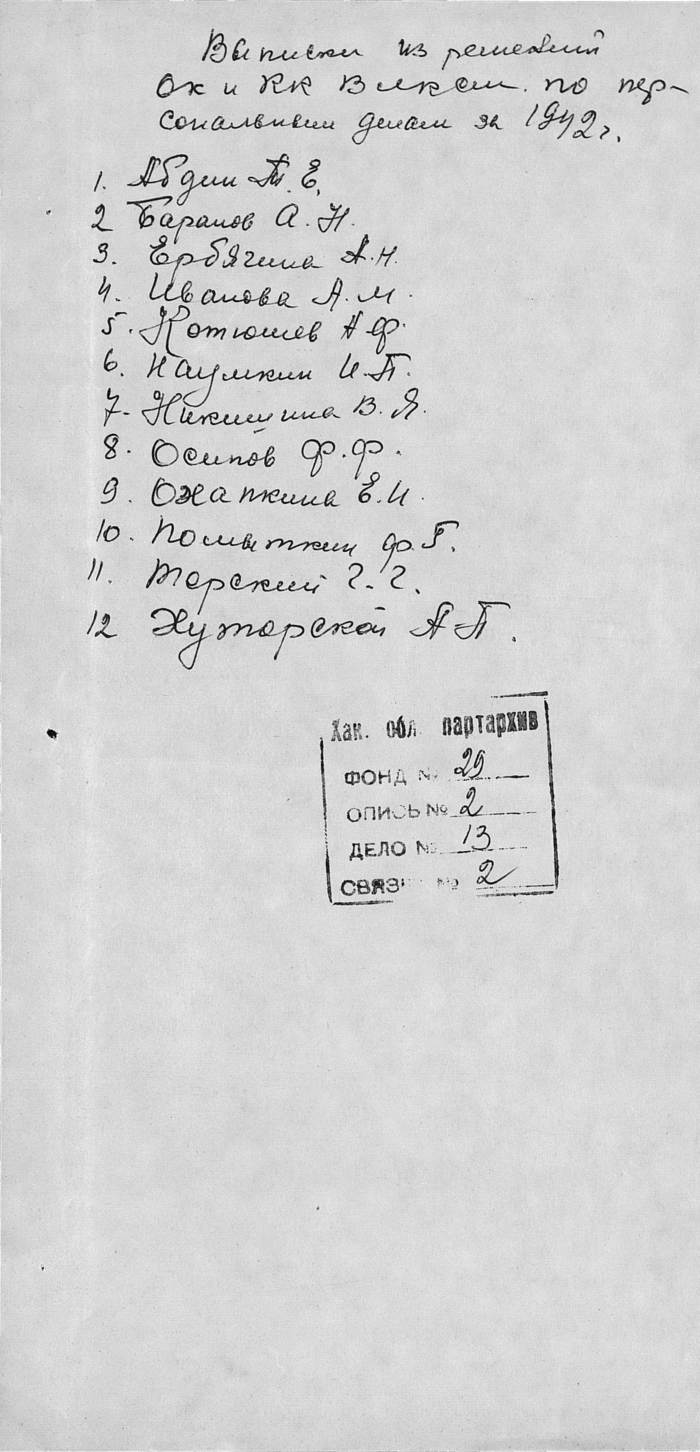 Выписки из решений
ОК и КК ВЛКСМ. по пер-
сональным делам за 1942 г.
1. Абдин Т. Е.
2 Баранов А. Н.
3. Ербягина А. Н.
4. Иванова А. М.
5. Котюшев А Ф.
6. Наумкин И. П.
7. Никишина В. Я.
8. Осипов Ф. Ф.
9. Ожапкина Е. И.
10. Помыткин Ф. Г.
11. Торский Г. Г.
12 Хуторской А П.
Хак. обл. партархив
ФОНД № 29
ОПИСЬ № 2
ДЕЛО № 13
СВЯЗКА № 2